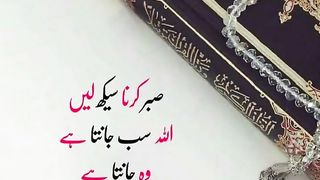 صبر کرنا سیکھ لیں
اللہ سب جانتا ہے
وہ جانتا ہے